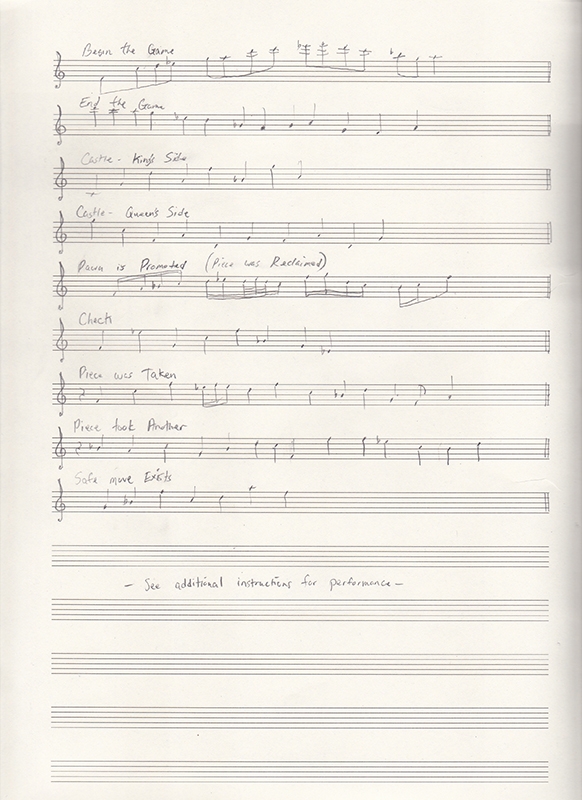 Begin the Game
End the Game
Castle - King's Side
Castle - Queen's Side
Pawn is Promoted (Piece was Reclaimed)
Check
Piece was Taken
Piece took Another
Safe move Exists
- See additional instructions for performance -